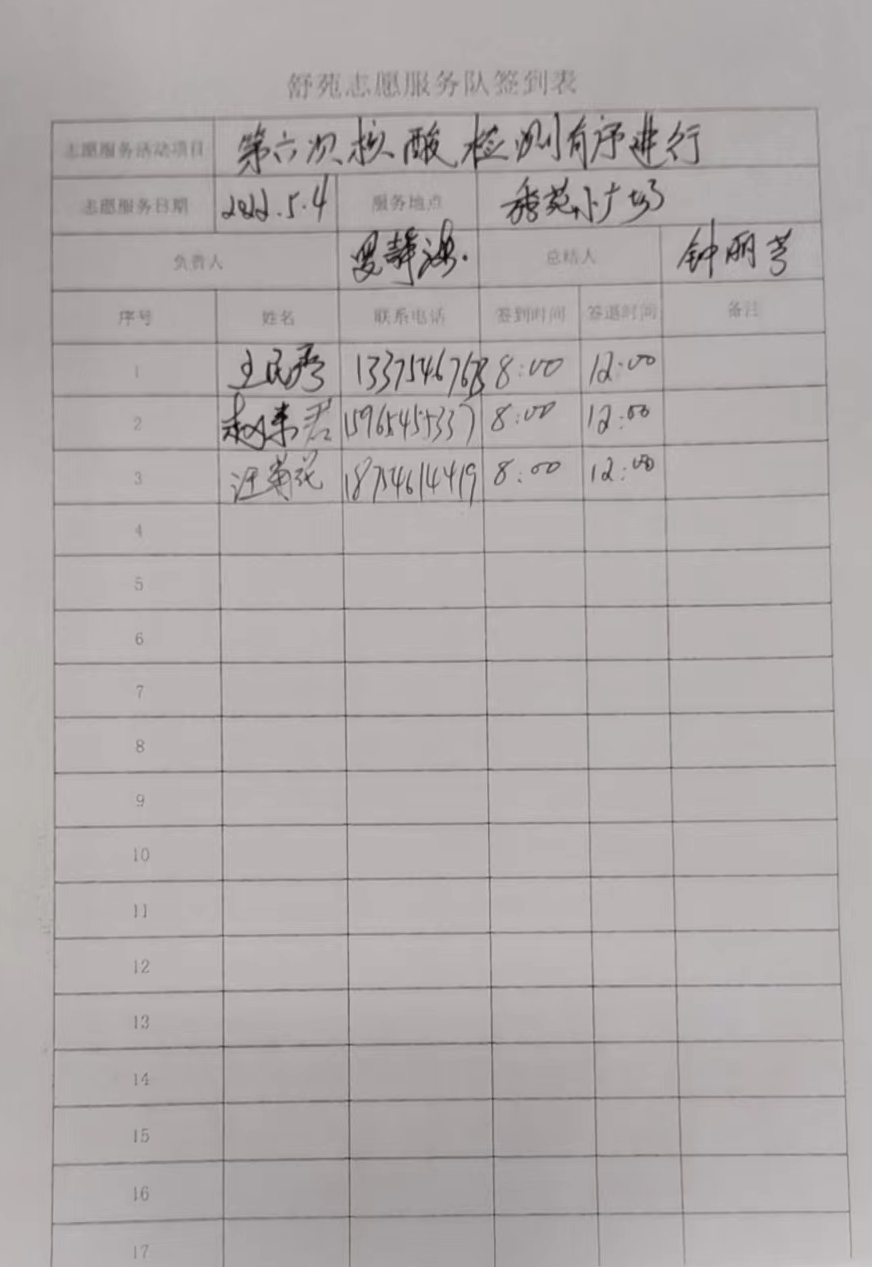 舒苑志愿服务队签到表
志愿服务活动项目 第六次核酸检测有序进行
志愿服务日期 2022.5.4 服务地点 舒苑小广场
负责人 总结人 钟丽芳
序号 姓名 联系电话 签到时间 签退时间 备注
1 王民秀 8:00 12:00
2 赵素君 15965455337 8:00 12:00
3 汪菊花 18754614419 8:00 12:00
4
5
6
7
8
9
10
11
12
13
14
15
16
17